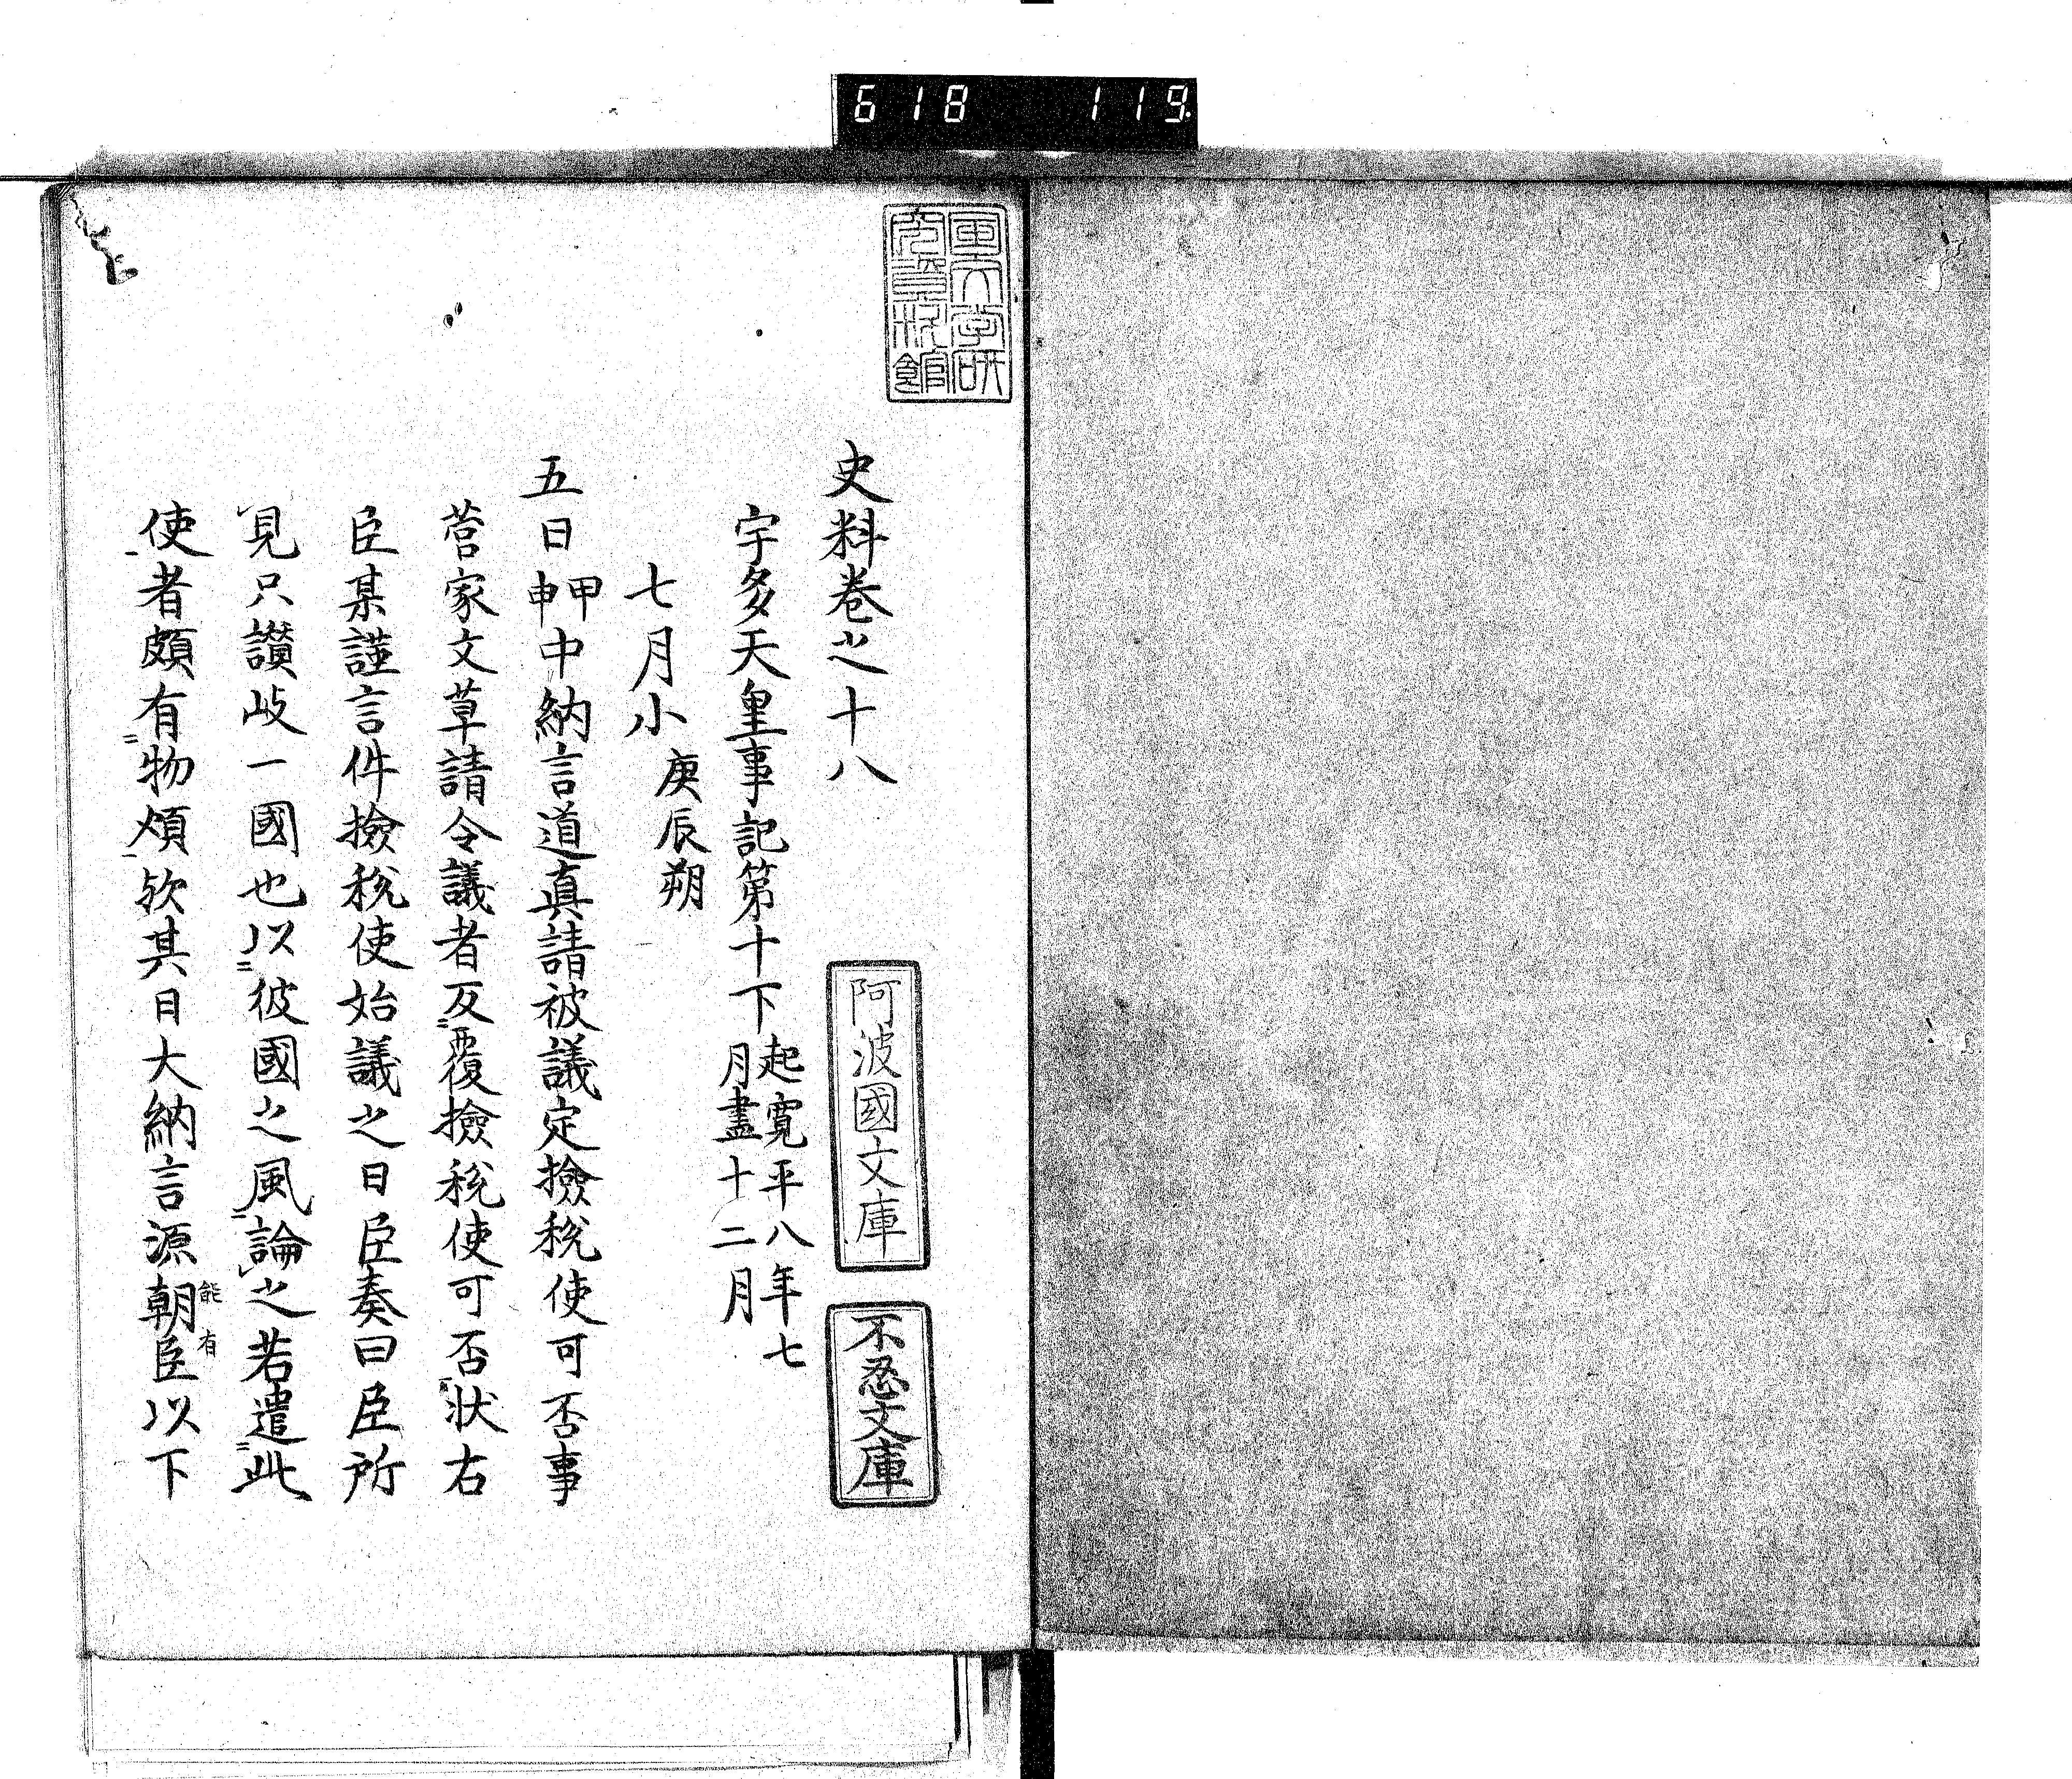 618 119
史料巻之十八
阿波國文庫
不忍文庫
宇多天皇事記第十下 起寛平八年七月盡十二月
七月小 庚辰朔
五日 甲申 中納言道真請被議定撿税使可否事
菅家文草請令議者反覆撿税使可否状右
臣某謹言件撿税使始議之日臣奏曰臣所
見只讃岐一國也以彼國之風論之若遣此
使者頗有物煩欤其日大納言源朝臣以下
能有